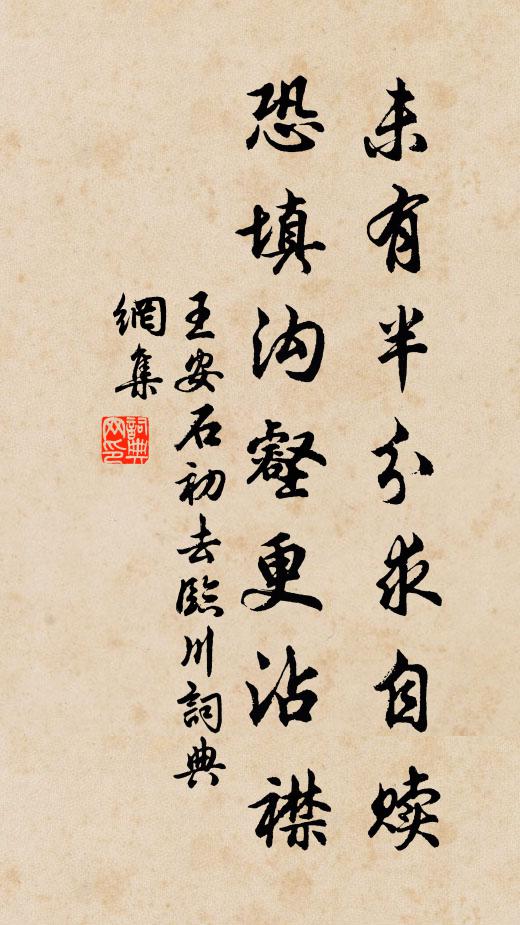 未有半分求自赎
恐填沟壑更沾襟
王安石初去臨川詞典
網集
詞典
网印